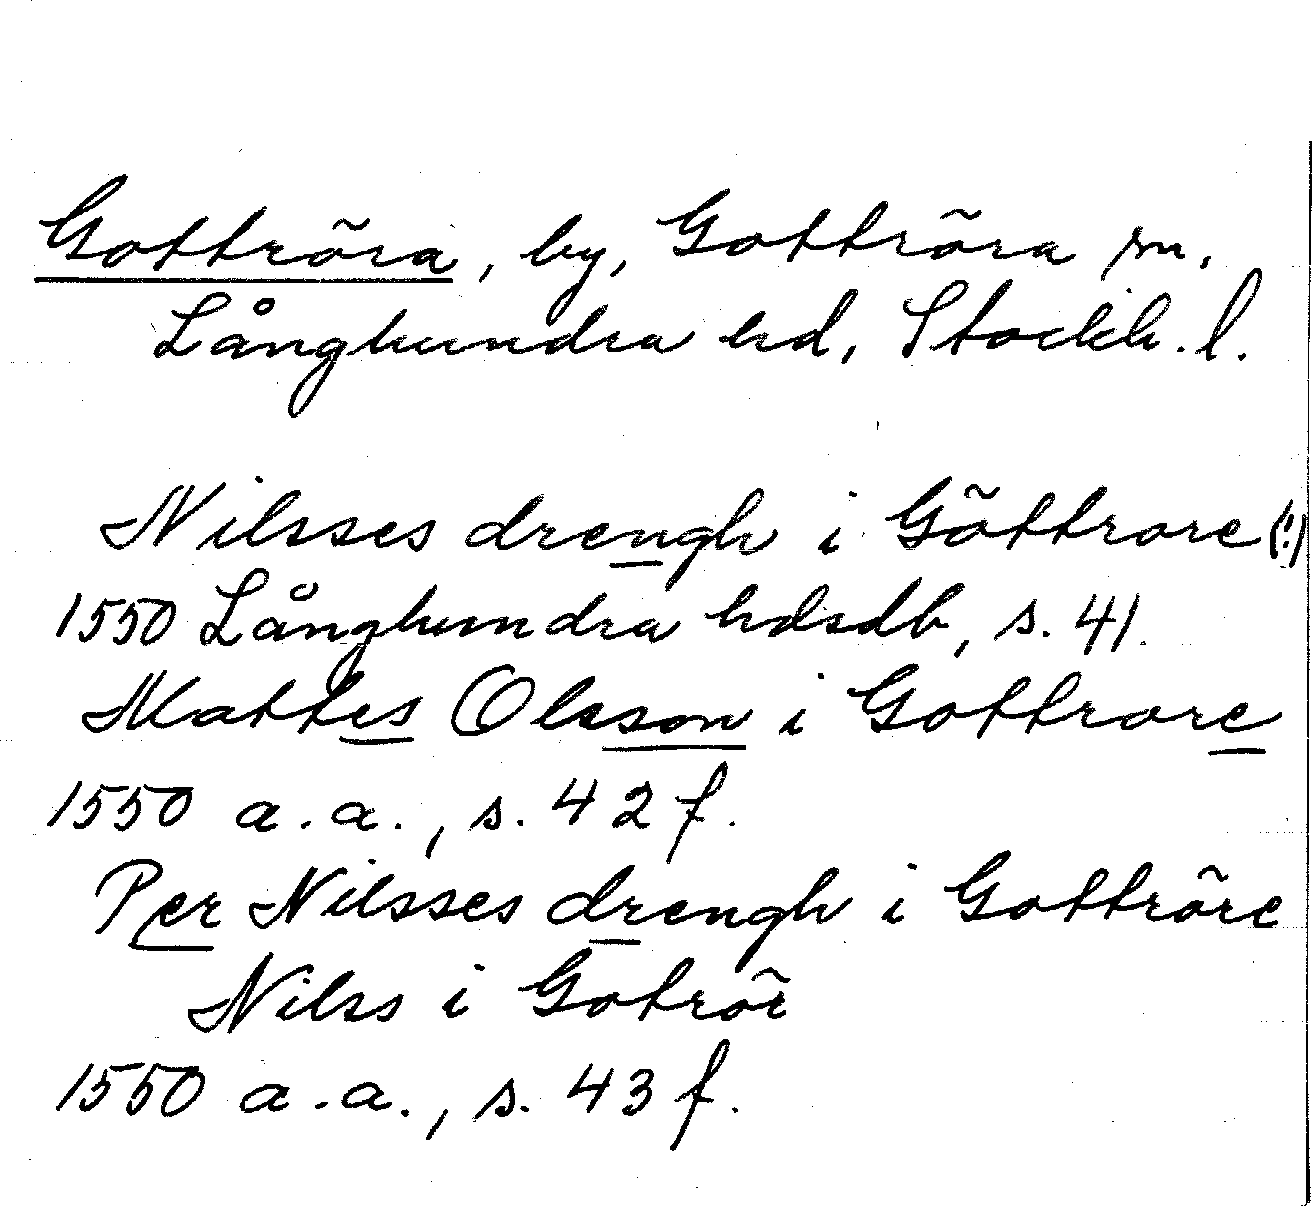 Gottröra, by, Gottröra sn.
Långhundra hd, Stockh. l.
Nilsses drengh i Göttrore (!)
1550 Långhundra hdsdb, s. 41.
Mattes Olsson i Gottrore
1550 a.a., s. 42 f.
Per Nilsses drengh i Gottröre
Nilss i Gotrör
1550 a.a., s. 43 f.